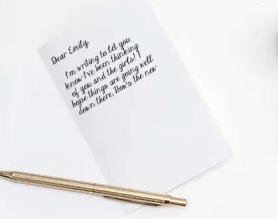 Dear Emily,
I'm writing to let you
know I've been thinking
of you and the girls! I
hope things are going well
down there. How's the new